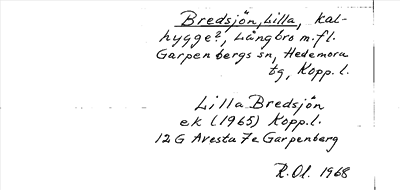 Bredsjön, Lilla, kal-
hygge?, Långbro m.fl.
Garpenbergs sn, Hedemora
tg, Kopp.l.
Lilla Bredsjön
ek (1965) Kopp.l.
12G Avesta 7e Garpenberg
R.Ol. 1968